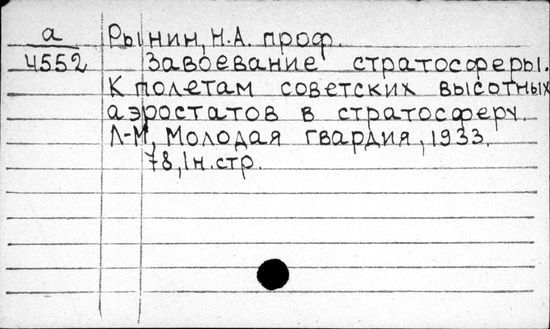 а Рынин, Н.А. проф.
4552 Завоевание стратосферы.
К полетам советских высотных
аэростатов в стратосферу.
Л-М, Молодая гвардия, 1933.
78, 1н.стр.